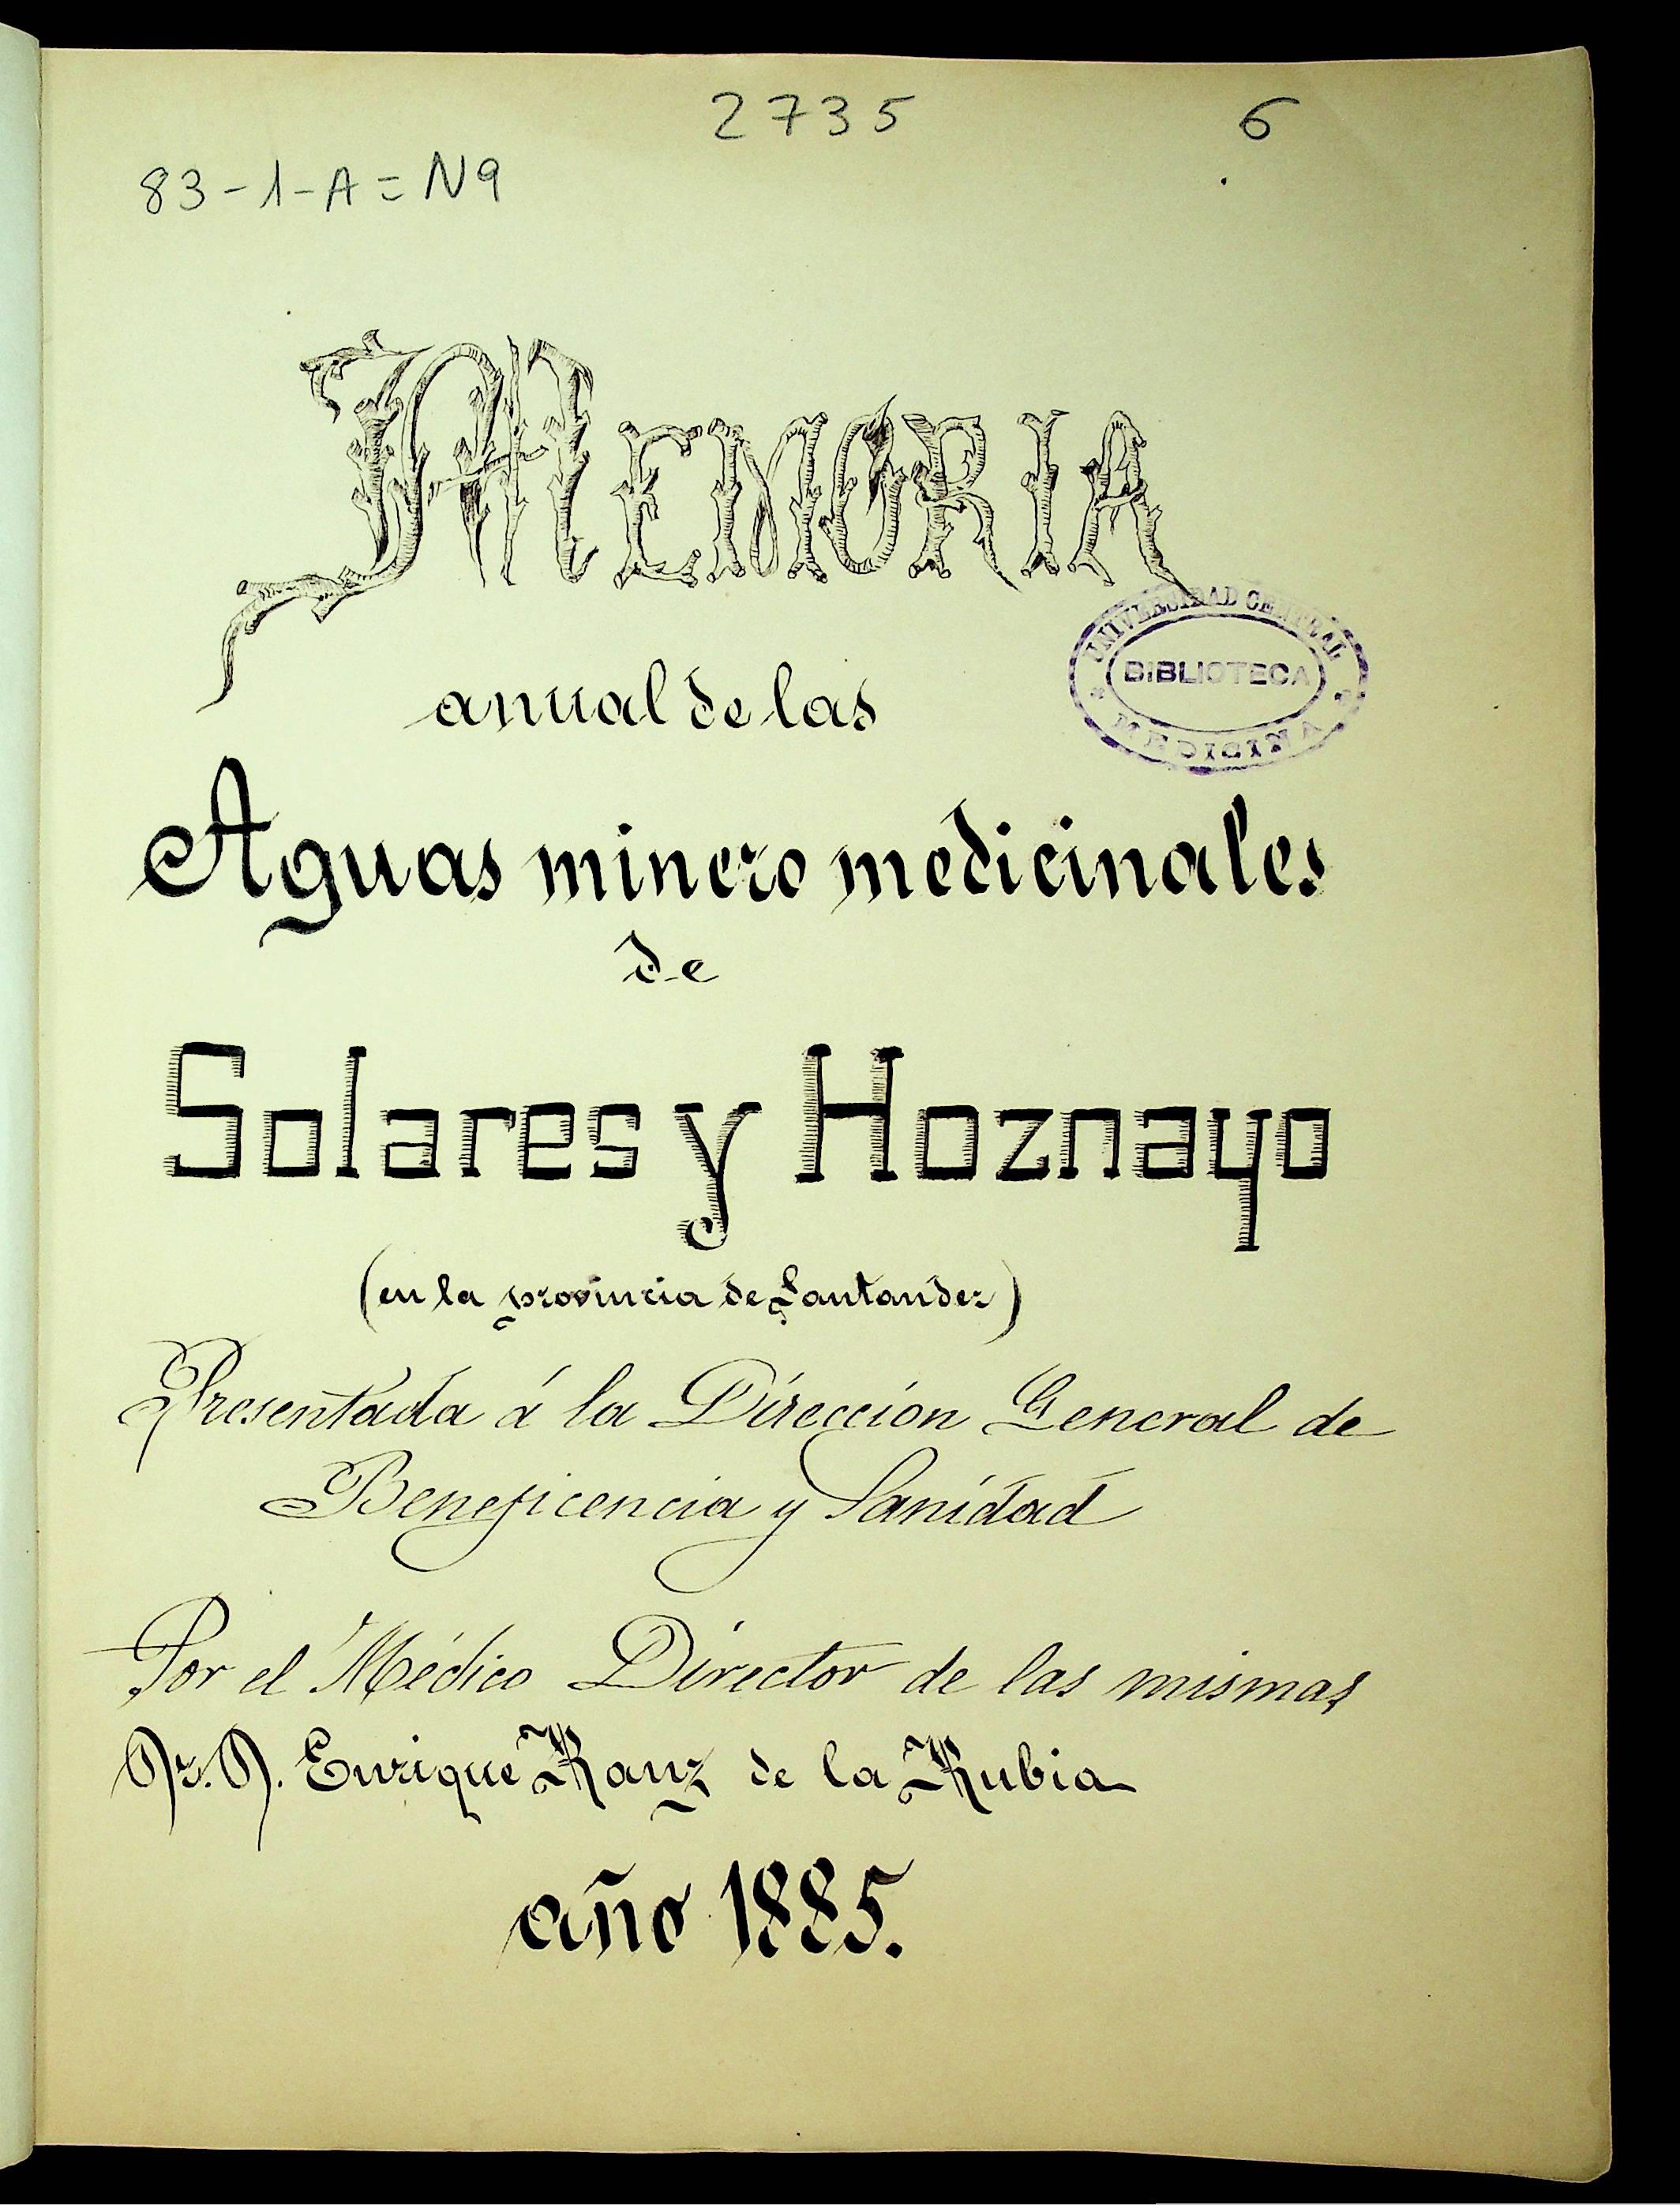 2735 6
83-1-A=N9
MEMORIA
anual de las
UNIVERSIDAD CENTRAL
BIBLIOTECA
MEDICINA
Aguas minero medicinales
de
Solares y Hoznayo
(en la provincia de Santander)
Presentada á la Dirección General de
Beneficencia y Sanidad
Por el Médico Director de las mismas
Dr. D. Enrique Ranz de la Rubia
año 1885.